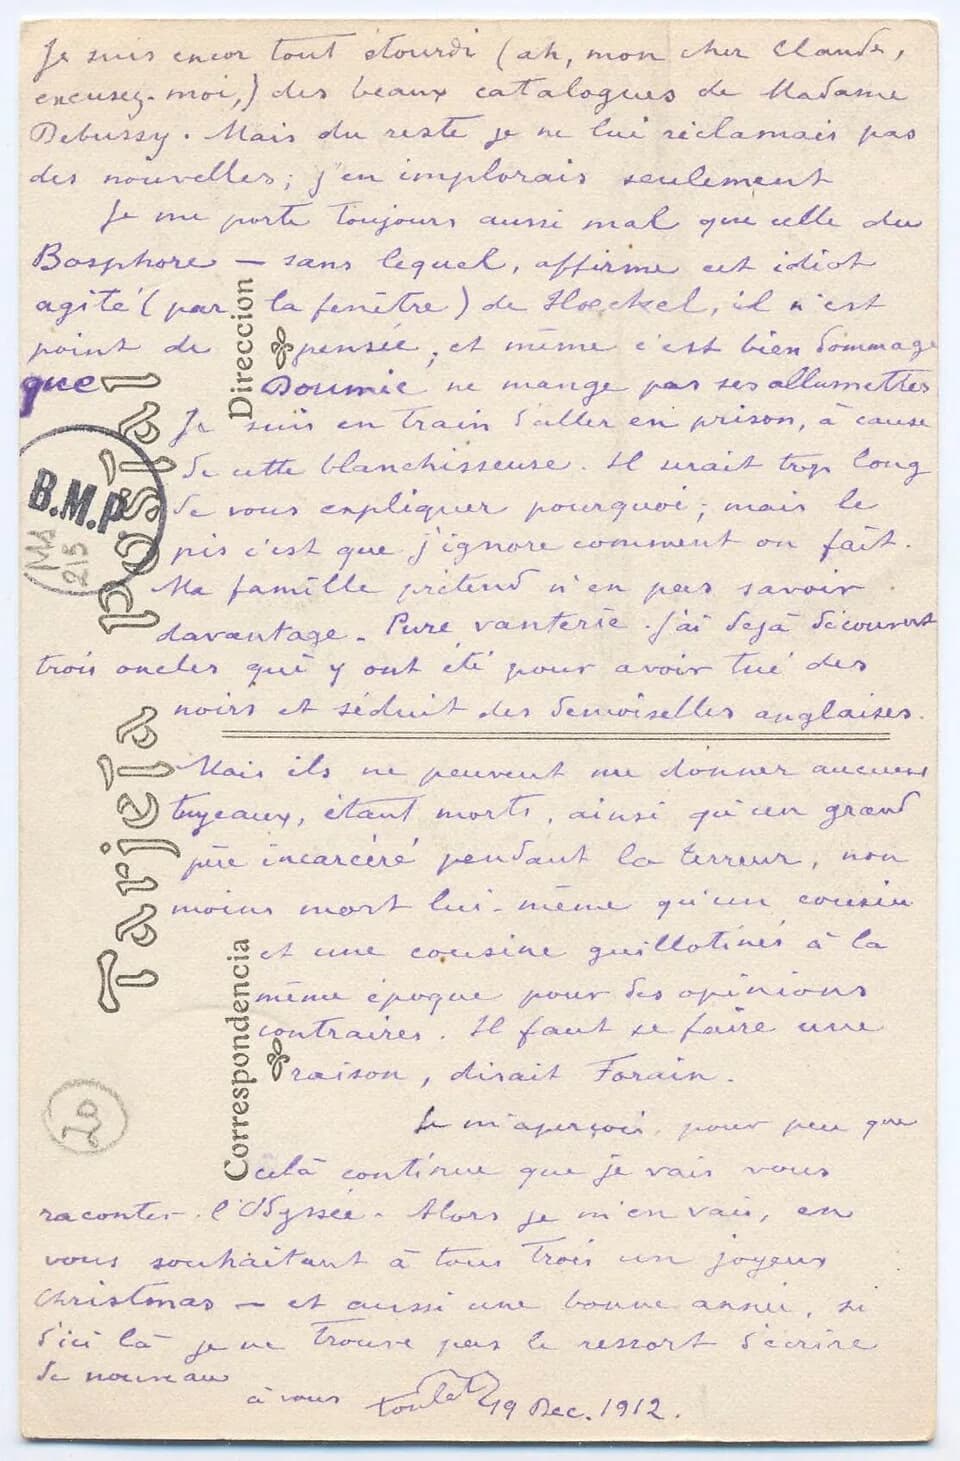 Je suis encor tout étourdi (ah, mon cher Claude,
excusez-moi,) des beaux catalogues de Madame
Debussy. Mais du reste je ne lui réclamais pas
des nouvelles; j'en implorais seulement
Je me porte toujours aussi mal que celle du
Bosphore — sans lequel, affirme cet idiot
agité (par la fenêtre) de Hœckel, il n'est
point de pensée, et même c'est bien dommage
que Doumic ne mange pas ses allumettes
Je suis en train d'aller en prison, à cause
de cette blanchisseuse. Il serait trop long
de vous expliquer pourquoi; mais le
pis c'est que j'ignore comment on fait.
Ma famille prétend n'en pas savoir
davantage. Pure vanterie. J'ai dejà découvert
trois oncles qui y ont été pour avoir tué des
noirs et séduit des demoiselles anglaises.
Mais ils ne peuvent me donner aucuns
tuyeaux, étant morts, ainsi qu'un grand
père incarcéré pendant la terreur, non
moins mort lui-même qu'un cousin
et une cousine guillotinés à la
même époque pour des opinions
contraires. Il faut se faire une
raison, disait Forain.
Je m'aperçois, pour peu que
celà continue que je vais vous
raconter l'Odyssée. Alors je m'en vais, en
vous souhaitant à tous trois un joyeux
Christmas — et aussi une bonne année, si
d'ici là je ne trouve pas le ressort d'écrire
de nouveau
à vous Toulet 19 Dec. 1912.
Tarjeta postal
Direccion
Correspondencia
B.M.P
215
20